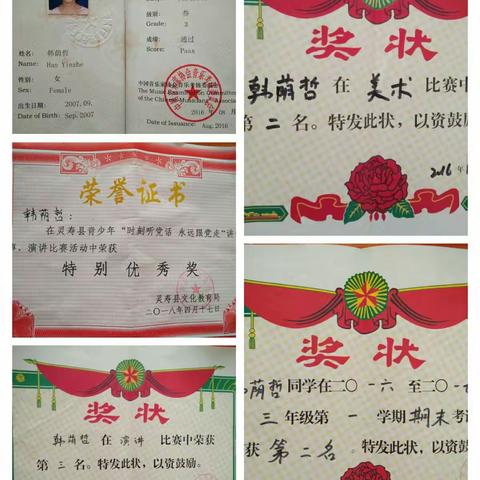 级别: 叁
Grade: 3
成绩: 通过
Score: Pass
姓名: 韩荫哲
Name: Han Yinzhe
性别: 女
Sex: Female
出生日期: 2007.09.
Date of Birth: Sep.2007
中国音乐家协会音乐考级委员会
The Music Examination Committee
of the Chinese Musicians' Association
2016 年 08 月
Date of Issuance: Aug.2016
奖状
韩荫哲 在 美术 比赛中
第二名。特发此状,以资鼓励
2016
荣誉证书
韩荫哲:
在灵寿县青少年“时刻听党话 永远跟党走”讲
事、演讲比赛活动中荣获
特别优秀奖
灵寿县文化教育局
二〇一八年四月十七日
奖状
荫哲同学在二〇一六至二〇一
三年级第一学期期末考
获第二名。特发此状,以资鼓
奖状
韩荫哲 在 演讲 比赛中荣获
第三名。特发此状,以资鼓励。